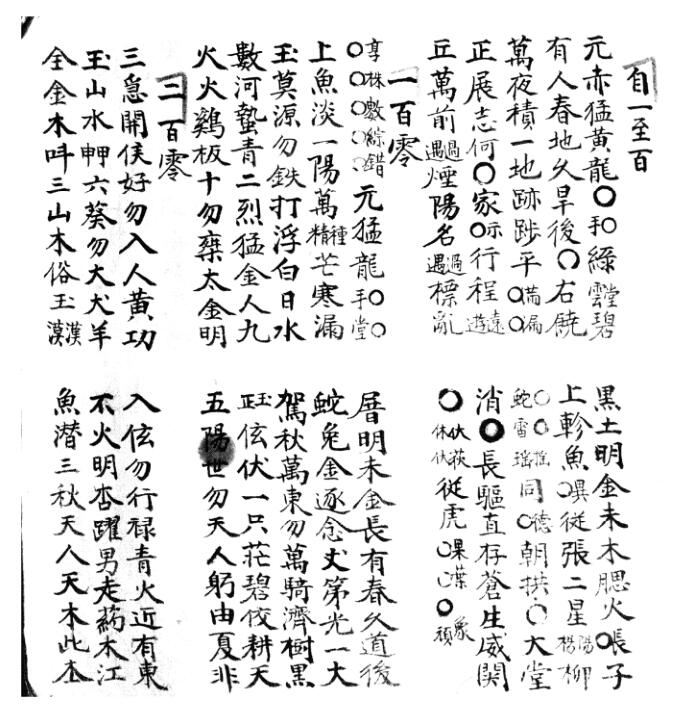 自一至百
元赤猛黃龍〇手〇綠雲堂碧
有人春地久旱後〇右饒
萬夜積一地跡踄平〇滿〇漏
正展志何〇家〇示行程遠遊
丘萬前過遇煙陽名過遇標亂
一百零
享〇林〇敷〇綜〇錯元猛龍〇手〇堂
上魚淡一陽萬種精芒寒漏
玉莫源勿鉄打浮白日水
數河蟄青二烈猛金人九
火火鷄板十勿棄太金明
二百零
三急開侯好勿入人黃功
玉山水軙六葵勿大犬羊
全金木呌三山木俗玉漢漠
黑土明金未木腮火〇張子
上軫魚從張二星陽楊柳
蛇雷瑤同〇德朝拱〇大堂
消〇長驅直存蒼生威関
〇伏休荻伏從虎〇果〇〇象頑
厝明未金長有春久道後
蛇兔金逐念丈第光一大
駕秋萬東勿萬騎濟樹黑
玉正伭伏一只茫碧佼耕天
五陽世勿天人躬由夏非
入伭勿行禄青火近有東
不火明杏躍男走葯木江
魚潜三秋天八天木此本